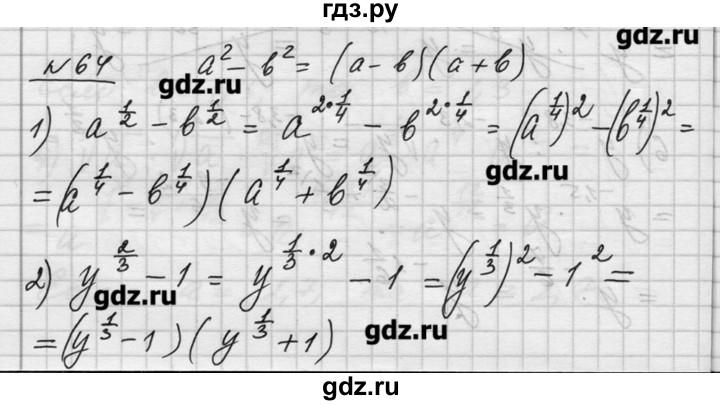 гдз.ру
gdz.ru
№64 a² - b² = (a - b)(a + b)
gdz.ru
1) a^{1/2} - b^{1/2} = a^{2·1/4} - b^{2·1/4} = (a^{1/4})² - (b^{1/4})² =
gdz.ru
= (a^{1/4} - b^{1/4})(a^{1/4} + b^{1/4})
2) y^{2/3} - 1 = y^{1/3·2} - 1 = (y^{1/3})² - 1² =
gdz.ru
= (y^{1/3} - 1)(y^{1/3} + 1)
gdz.ru
gdz.ru